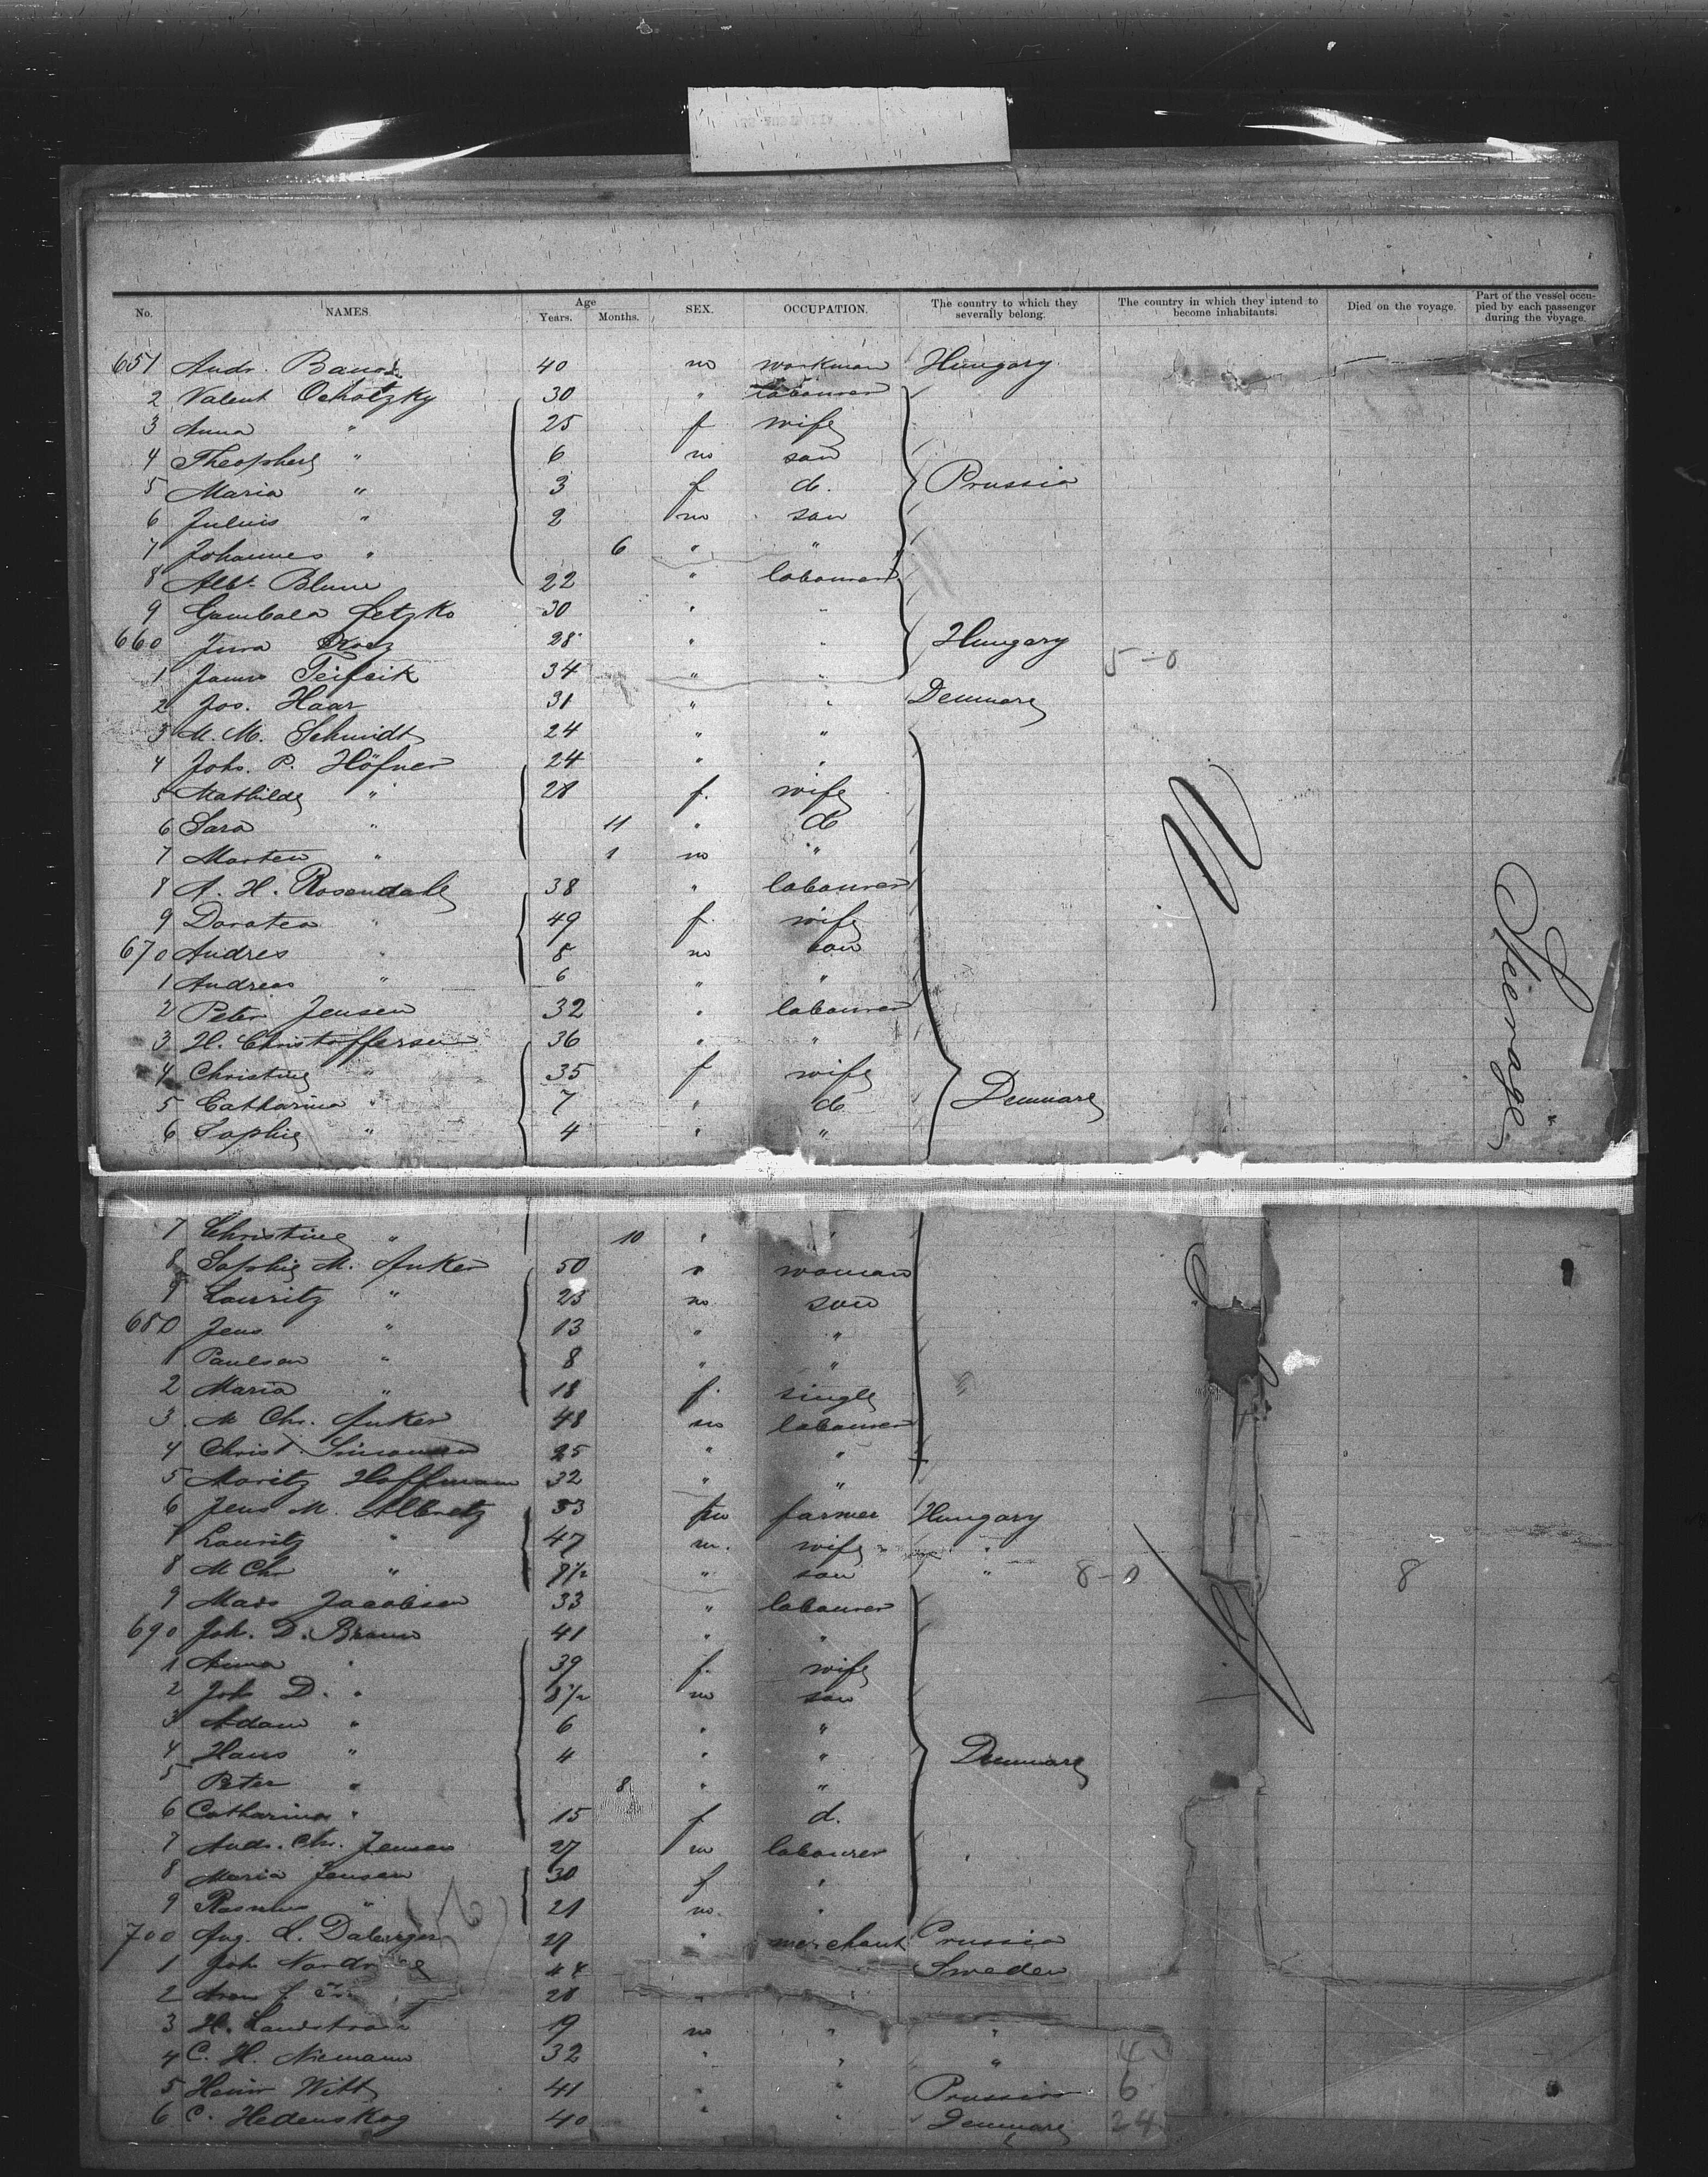 No. NAMES. Age Years. Months. SEX. OCCUPATION. The country to which they severally belong. The country in which they intend to become inhabitants. Died on the voyage. Part of the vessel occupied by each passenger during the voyage.
651 Andr. 40 m workman Hungary
2 Valent Ochotzky 30 " labourer
3 Anna " 25 f wife
4 " 6 m son
5 Maria " 3 f d. Prussia
6 Julius " 2 m son
7 Johannes " 6 " "
8 Albt. Blume 22 " labourer
9 30 " "
660 28 " " Hungary 5-0
1 34 " "
2 Jos. Haar 31 " " Denmark
3 M. M. Schmidt 24 " "
4 Johs. P. Höfner 24 " "
5 Mathilde " 28 f. wife
6 Sara " 11 " d
7 Morten " 1 m "
8 A. H. Rosendahl 38 " labourer
9 Doratea " 49 f. wife
670 Andres " 8 m son
1 Andreas " 6 " "
2 Peter Jensen 32 " labourer
3 H. Christoffersen 36 " "
4 Christine " 35 f wife
5 Catharina " 7 " d Denmark
6 Sophie " 4 " "
Steerage
7 Christine " 10 " "
8 Sophie M. Anker 50 " woman
9 Lauritz " 23 m son
680 Jens " 13 " "
1 Paulsen " 8 " "
2 Maria " 18 f. single
3 M Chr. Anker 48 m labourer
4 Christ. Simonsen 25 " "
5 Moritz Hoffmann 32 " "
6 Jens M. Albretz 53 m farmer Hungary
7 Lauritz " 47 m. wife "
8 M Chr " 8½ " son " 8-0 8
9 Mads Jacobsen 33 " labourer
690 Joh. D. Braun 41 " "
1 Anna " 39 f. wife
2 Joh D. " 8½ m son
3 Adam " 6 " "
4 Hans " 4 " " Denmark
5 Peter " 8 " "
6 Catharina " 15 f d.
7 Andr. Chr. Jensen 27 m labourer
8 Maria Jensen 30 f "
9 Rasmus " 21 m. "
700 Aug. L. 27 " merchant Prussia
1 Joh 44 Sweden
2 28 "
3 H. Landstrom 19 m " "
4 C. H. Niemann 32 " " " 4
5 Heinr Witt 41 " " Prussia 6
6 C. Hedenskog 40 " " Denmark 24